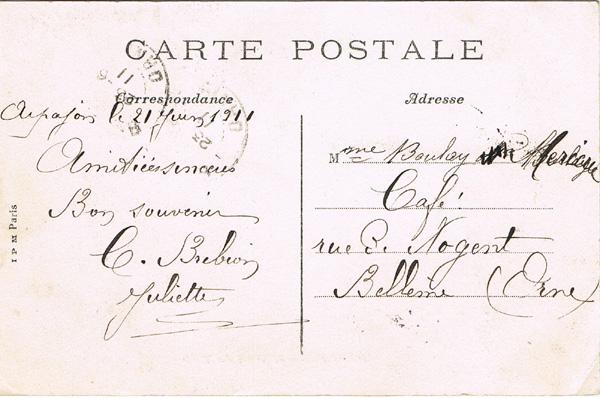 CARTE POSTALE
Correspondance
Adresse
Arpajon le 21 Juin 1911
Amitiés sincères
Bon souvenir
C. Brebion
Juliette
Mme Boulay
Café
rue de Nogent
Belleme (Orne)
I P M Paris